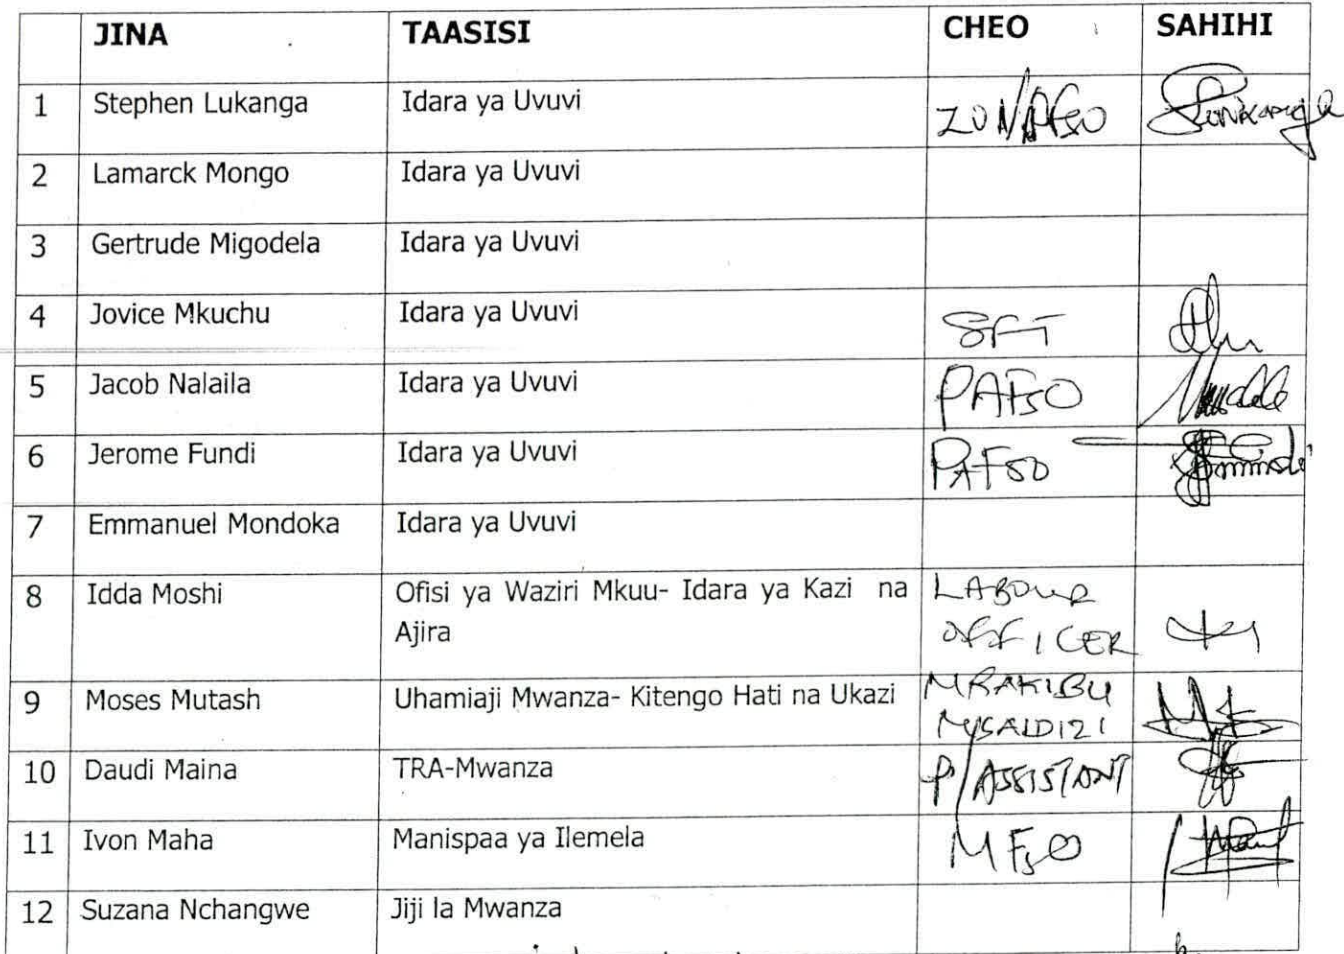 JINA TAASISI CHEO SAHIHI
1 Stephen Lukanga Idara ya Uvuvi ZONAFSO
2 Lamarck Mongo Idara ya Uvuvi
3 Gertrude Migodela Idara ya Uvuvi
4 Jovice Mkuchu Idara ya Uvuvi SFT
5 Jacob Nalaila Idara ya Uvuvi PAFSO
6 Jerome Fundi Idara ya Uvuvi PAFSO
7 Emmanuel Mondoka Idara ya Uvuvi
8 Idda Moshi Ofisi ya Waziri Mkuu- Idara ya Kazi na LABOUR
Ajira OFFICER
9 Moses Mutash Uhamiaji Mwanza- Kitengo Hati na Ukazi MRAKIBU
MSAIDIZI
10 Daudi Maina TRA-Mwanza P/ASSISTANT
11 Ivon Maha Manispaa ya Ilemela MFSO
12 Suzana Nchangwe Jiji la Mwanza